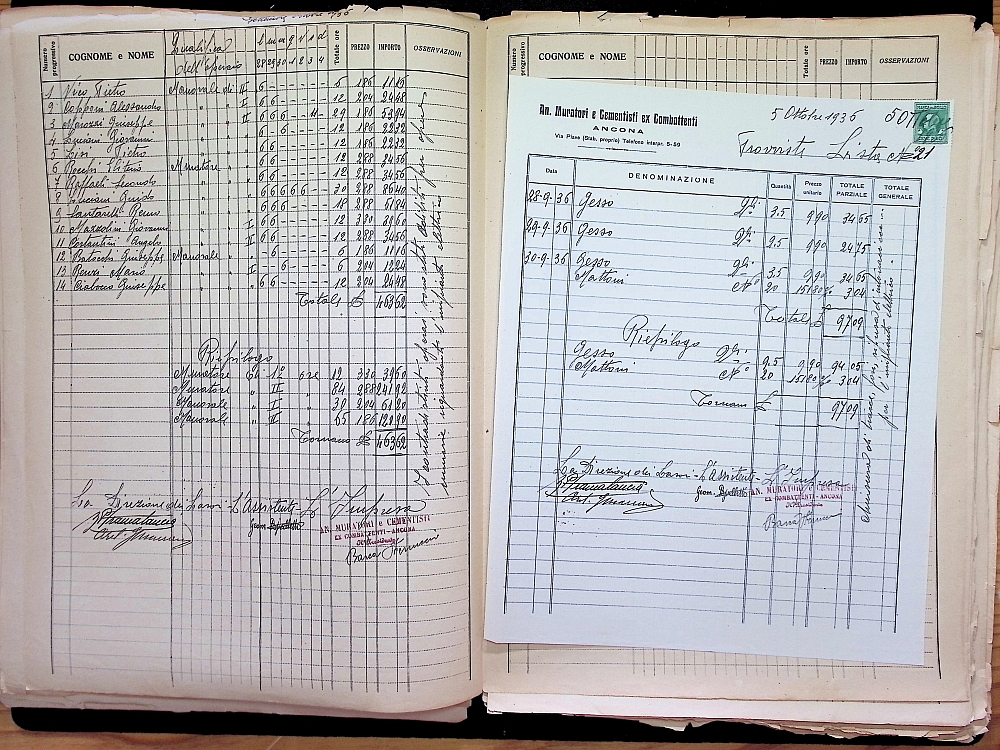 Numero progressivo COGNOME e NOME Qualifica dell'operaio l m m g v s d Totale ore PREZZO IMPORTO OSSERVAZIONI
28 29 30 1 2 3 4
1 Vico Pietro Manovale di II 6 - - - - - - 6 186 11 16
2 Capponi Alessandro " " I 6 6 - - - - - 12 204 24 48
3 Marozzi Giuseppe " " II 6 6 6 - - 11 - 29 186 53 94
4 Luciani Giovanni " " " 6 - 6 - - - - 12 186 22 32
5 Lisi Pietro " " " 6 6 - - - - - 12 186 22 32
6 Muratore " 6 6 - - - - - 12 288 34 56
7 Raffaeli Secondo " " " 6 6 - - - - - 12 288 34 56
8 Luciani Guido " " " 6 6 6 6 6 - - 30 288 86 40
9 Santarelli Remo " " " 6 6 6 - - - - 18 288 51 84
10 Mazzolini Giovanni " " I 6 6 - - - - - 12 330 39 60
11 Costantini Angelo " " II 6 6 - - - - - 12 288 34 56
12 Giuseppe Manovale " " - 6 - - - - - 6 186 11 16
13 Renzi Mario " " I - - 6 - - - - 6 204 12 24
14 Giuseppe " " " 6 6 - - - - - 12 204 24 48
Totale £ 463 62
Riepilogo
Muratore di 1ª ore 12 330 39 60
Muratore " II " 84 288 241 92
Manovale " I " 30 204 61 20
Manovale " II " 65 186 120 90
Tornano £ 463 62
La Direzione dei Lavori - L'Assistente - L'Impresa
geom.
AN. MURATORI e CEMENTISTI
EX COMBATTENTI - ANCONA
Il Presidente
Numero progressivo COGNOME e NOME Totale ore PREZZO IMPORTO OSSERVAZIONI
An. Muratori e Cementisti ex Combattenti
ANCONA
Via Piave (Stab. proprio) Telefono interpr. 5-59
5 Ottobre 1936
Provviste Lista N° 21
Data DENOMINAZIONE Quantità Prezzo unitario TOTALE PARZIALE TOTALE GENERALE
28-9-36 Gesso Q.li 3.5 9,90 34 65
29-9-36 Gesso Q.li 2.5 9,90 24 75
30-9-36 Gesso Q.li 3.5 9,90 34 65
Mattoni N° 20 151,80 % 3 04
Totale £ 97 09
Riepilogo
Gesso Q.li 9.5 9,90 94 05
Mattoni N° 20 151,80 % 3 04
Tornano £ 97 09
La Direzione dei Lavori - L'Assistente - L'Impresa
geom.
AN. MURATORI e CEMENTISTI
EX COMBATTENTI - ANCONA
Il Presidente